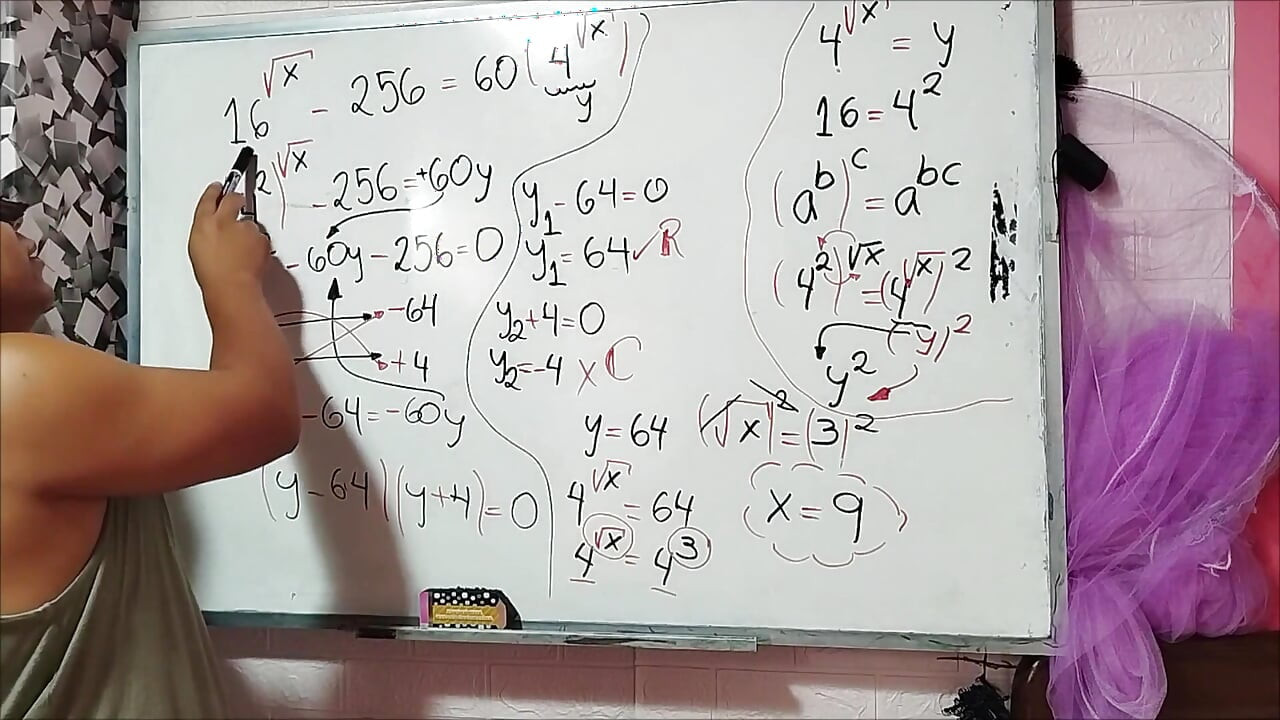 16^√x - 256 = 60(4^√x)
y
2)^√x - 256 = +60y
- 60y - 256 = 0
-64
+4
-64 = -60y
(y - 64)(y + 4) = 0
y₁ - 64 = 0
y₁ = 64 ✓ R
y₂ + 4 = 0
y₂ = -4 x C
y = 64
4^√x = 64
4^√x = 4^3
(√x)^2 = (3)^2
x = 9
4^√x = y
16 = 4^2
(a^b)^c = a^bc
(4^2)^√x = (4^√x)^2
(y)^2
y^2